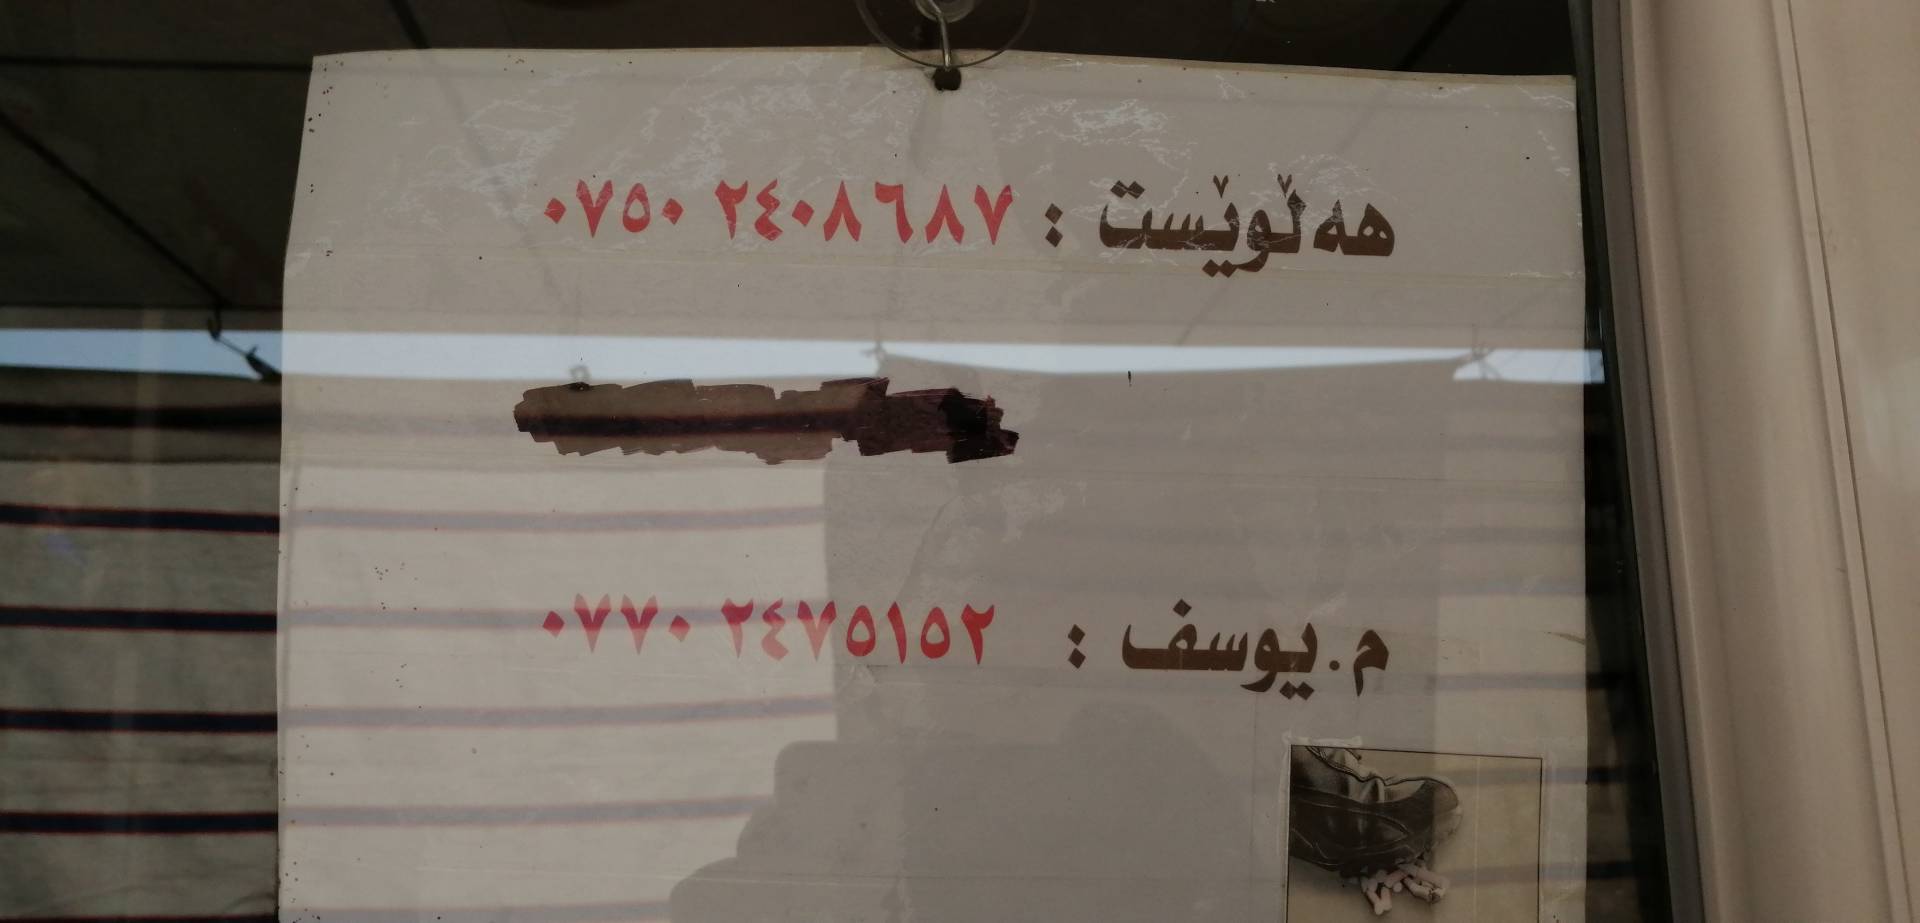 هەڵوێست : ٠٧٥٠ ٢٤٠٨٦٨٧
م.یوسف : ٠٧٧٠ ٢٤٧٥١٥٢